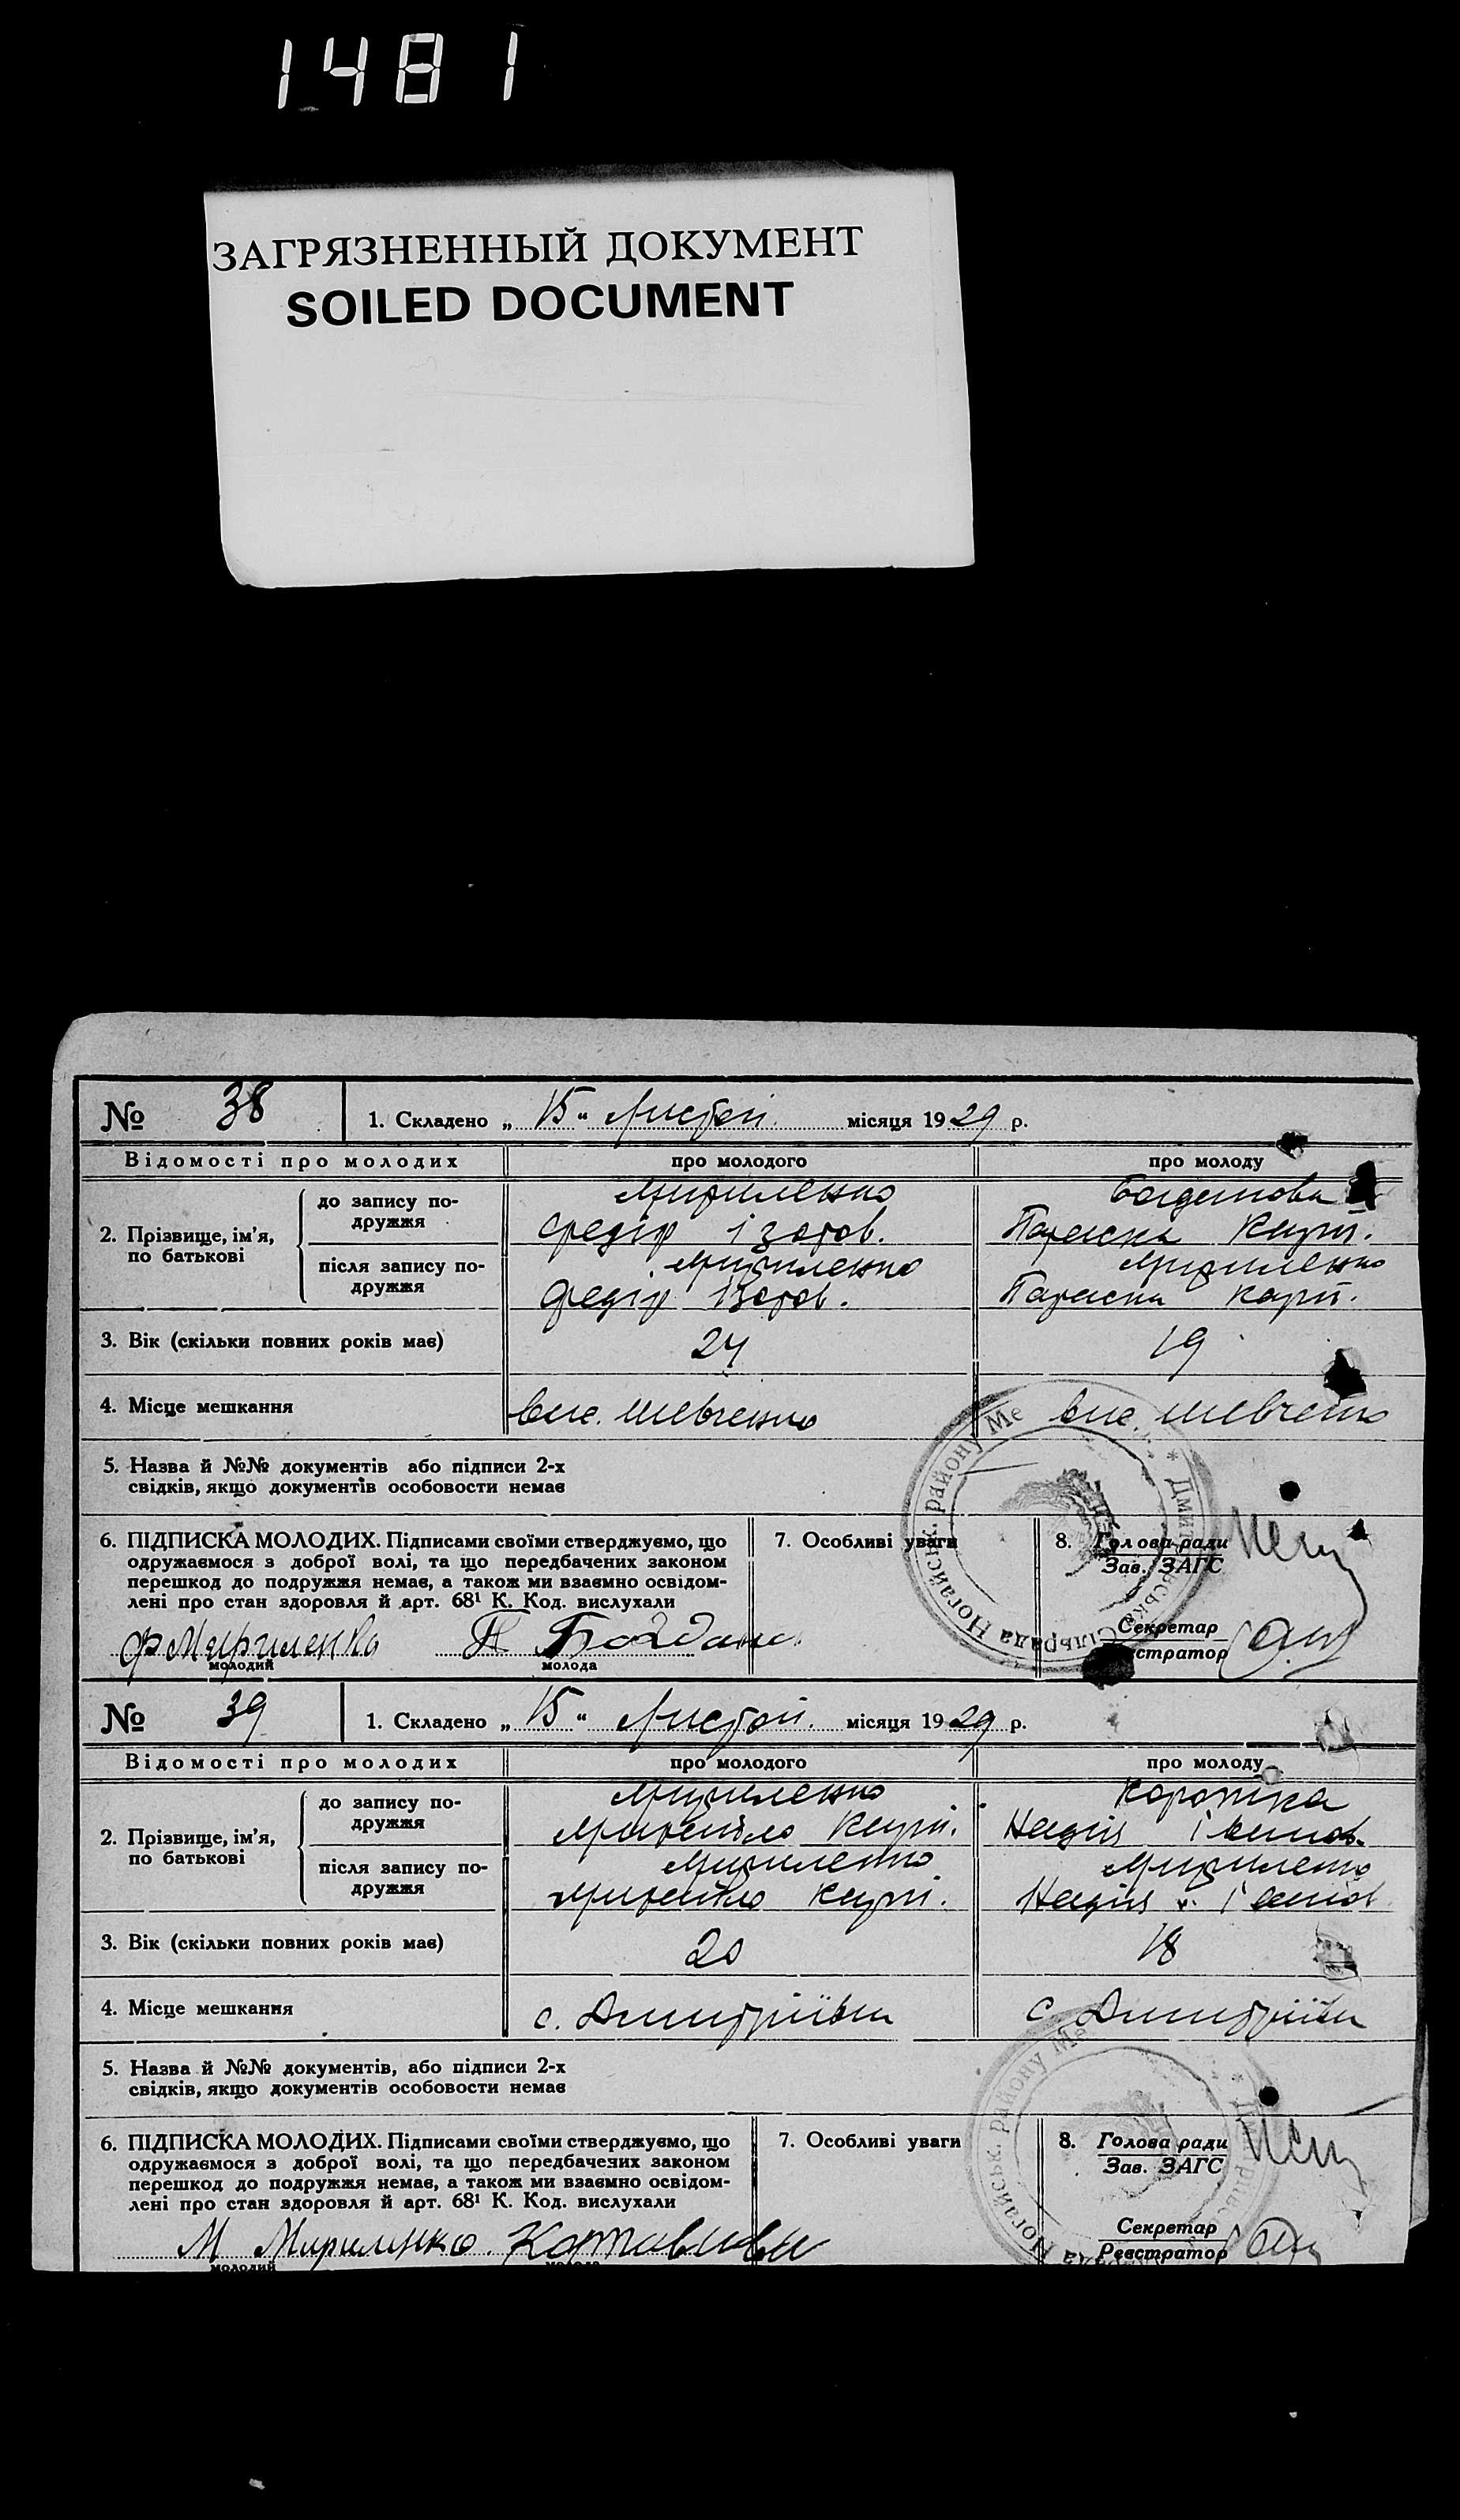 1481
ЗАГРЯЗНЕННЫЙ ДОКУМЕНТ
SOILED DOCUMENT
№ 38
1. Складено „ 15 “ Листоп. місяця 1929 р.
Відомості про молодих
про молодого
про молоду
2. Прізвище, ім’я, по батькові
до запису подружжя
Мириленко
Федір Ізотов.
Параска Карп.
після запису подружжя
Мириленко
Федір Ізотов.
Мириленко
Параска Карп.
3. Вік (скільки повних років має)
24
19
4. Місце мешкання
вис. Шевченко
вис. Шевченко
5. Назва й №№ документів або підписи 2-х
свідків, якщо документів особовости немає
6. ПІДПИСКА МОЛОДИХ. Підписами своїми стверджуємо, що
одружаємося з доброї волі, та що передбачених законом
перешкод до подружжя немає, а також ми взаємно освідом-
лені про стан здоровля й арт. 68¹ К. Код. вислухали
Ф Мириленко
молодий
молода
7. Особливі уваги
8. Голова ради
Зав. ЗАГС
Секретар
стратор
Сільрада Ногайськ. району Ме
№ 39
1. Складено „ 15 “ Листоп. місяця 1929 р.
Відомості про молодих
про молодого
про молоду
2. Прізвище, ім’я, по батькові
до запису подружжя
Мириленко
Михайло Карп.
Надія Іванов.
після запису подружжя
Мириленко
Михайло Карп.
Мириленко
Надія Іванов
3. Вік (скільки повних років має)
20
18
4. Місце мешкання
с. Дмитріївка
с. Дмитріївка
5. Назва й №№ документів, або підписи 2-х
свідків, якщо документів особовости немає
6. ПІДПИСКА МОЛОДИХ. Підписами своїми стверджуємо, що
одружаємося з доброї волі, та що передбачених законом
перешкод до подружжя немає, а також ми взаємно освідом-
лені про стан здоровля й арт. 68¹ К. Код. вислухали
М Мириленко
молодий
7. Особливі уваги
8. Голова ради
Зав. ЗАГС
Секретар
Реєстратор
Ногайськ. району Ме